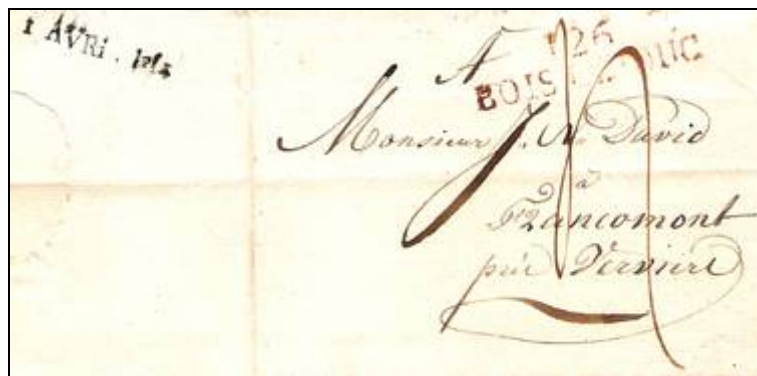 1 AVRI. 1813
126
BOIS LE DUC
A
Monsieur J. N. David
à
Francomont
près Verviers